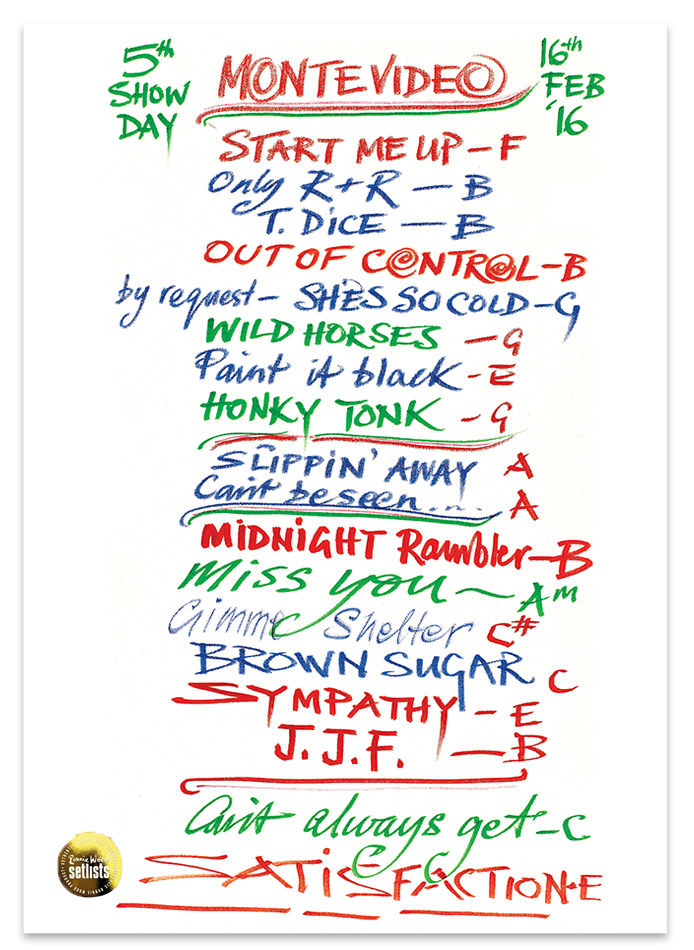 5th SHOW DAY
MONTEVIDEO
16th FEB '16
START ME UP - F
Only R+R - B
T. DICE - B
OUT OF CONTROL - B
by request - SHE'S SO COLD - G
WILD HORSES - G
Paint it black - E
HONKY TONK - G
SLIPPIN' AWAY A
Can't be seen.... A
MIDNIGHT Rambler - B
Miss you ~ Am
Gimme Shelter C#
BROWN SUGAR C
SYMPATHY - E
J.J.F. - B
Can't always get - C
SATISFACTION - E
Ronnie Wood
setlists